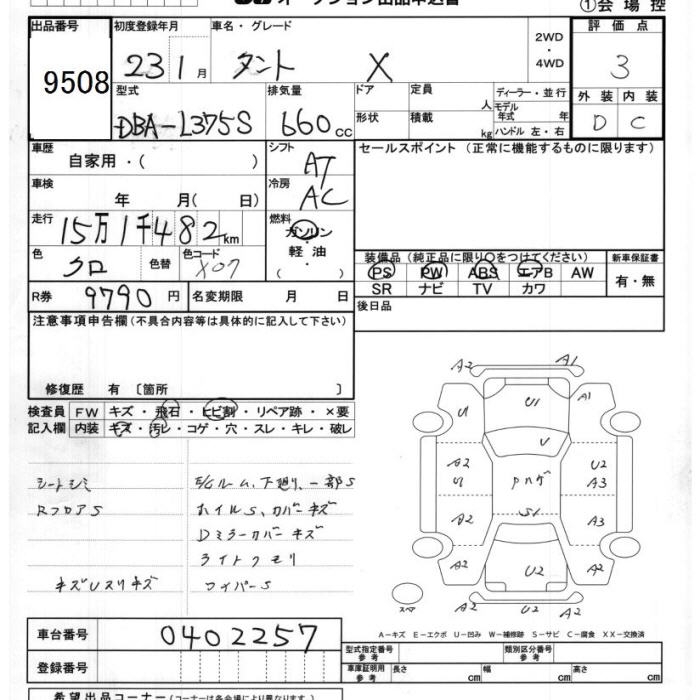 オークション出品申込書 ①会場控
出品番号 初度登録年月 車名・グレード 2WD・4WD 評価点
9508 23 1月 タント X 3
型式 排気量 ドア 定員 人 ディーラー・並行 外装 内装
DBA-L375S 660cc 形状 積載 kg モデル年式 年 ハンドル 左・右 D C
車歴 自家用・( ) シフト AT セールスポイント (正常に機能するものに限ります)
車検 年 月( 日) 冷房 AC
走行 15万1千482km 燃料 ガソリン・軽油・( )
色 クロ 色替 色コード X07 装備品 (純正品に限り○をつけてください) 新車保証書
PS PW ABS エアB AW 有・無
SR ナビ TV カワ
R券 9790円 名変期限 月 日 後日品
注意事項申告欄(不具合内容等は具体的に記入して下さい)
修復歴 有 〔箇所 〕
検査員 FW キズ・飛石・ヒビ割・リペア跡・×要
記入欄 内装 キズ・汚レ・コゲ・穴・スレ・キレ・破レ
シートシミ E/Gルーム、下廻り、一部S
RフロアS ホイルS、カバーキズ
Dミラーカバーキズ
ライトクモリ
キズUスリキズ ワイパーS
A2 A1
U U1 A1
U
A2 U Pハゲ U2 A3
A2 S1 A3
A2 U2 A2
スペア A2 U2 A2
A-キズ E-エクボ U-凹み W-補修跡 S-サビ C-腐食 XX-交換済
車台番号 0402257
登録番号
型式指定番号 参考 類別区分番号 参考
車庫証明用 参考 長さ cm 幅 cm 高さ cm
希望出品コーナー(コーナーは各会場により異なります)